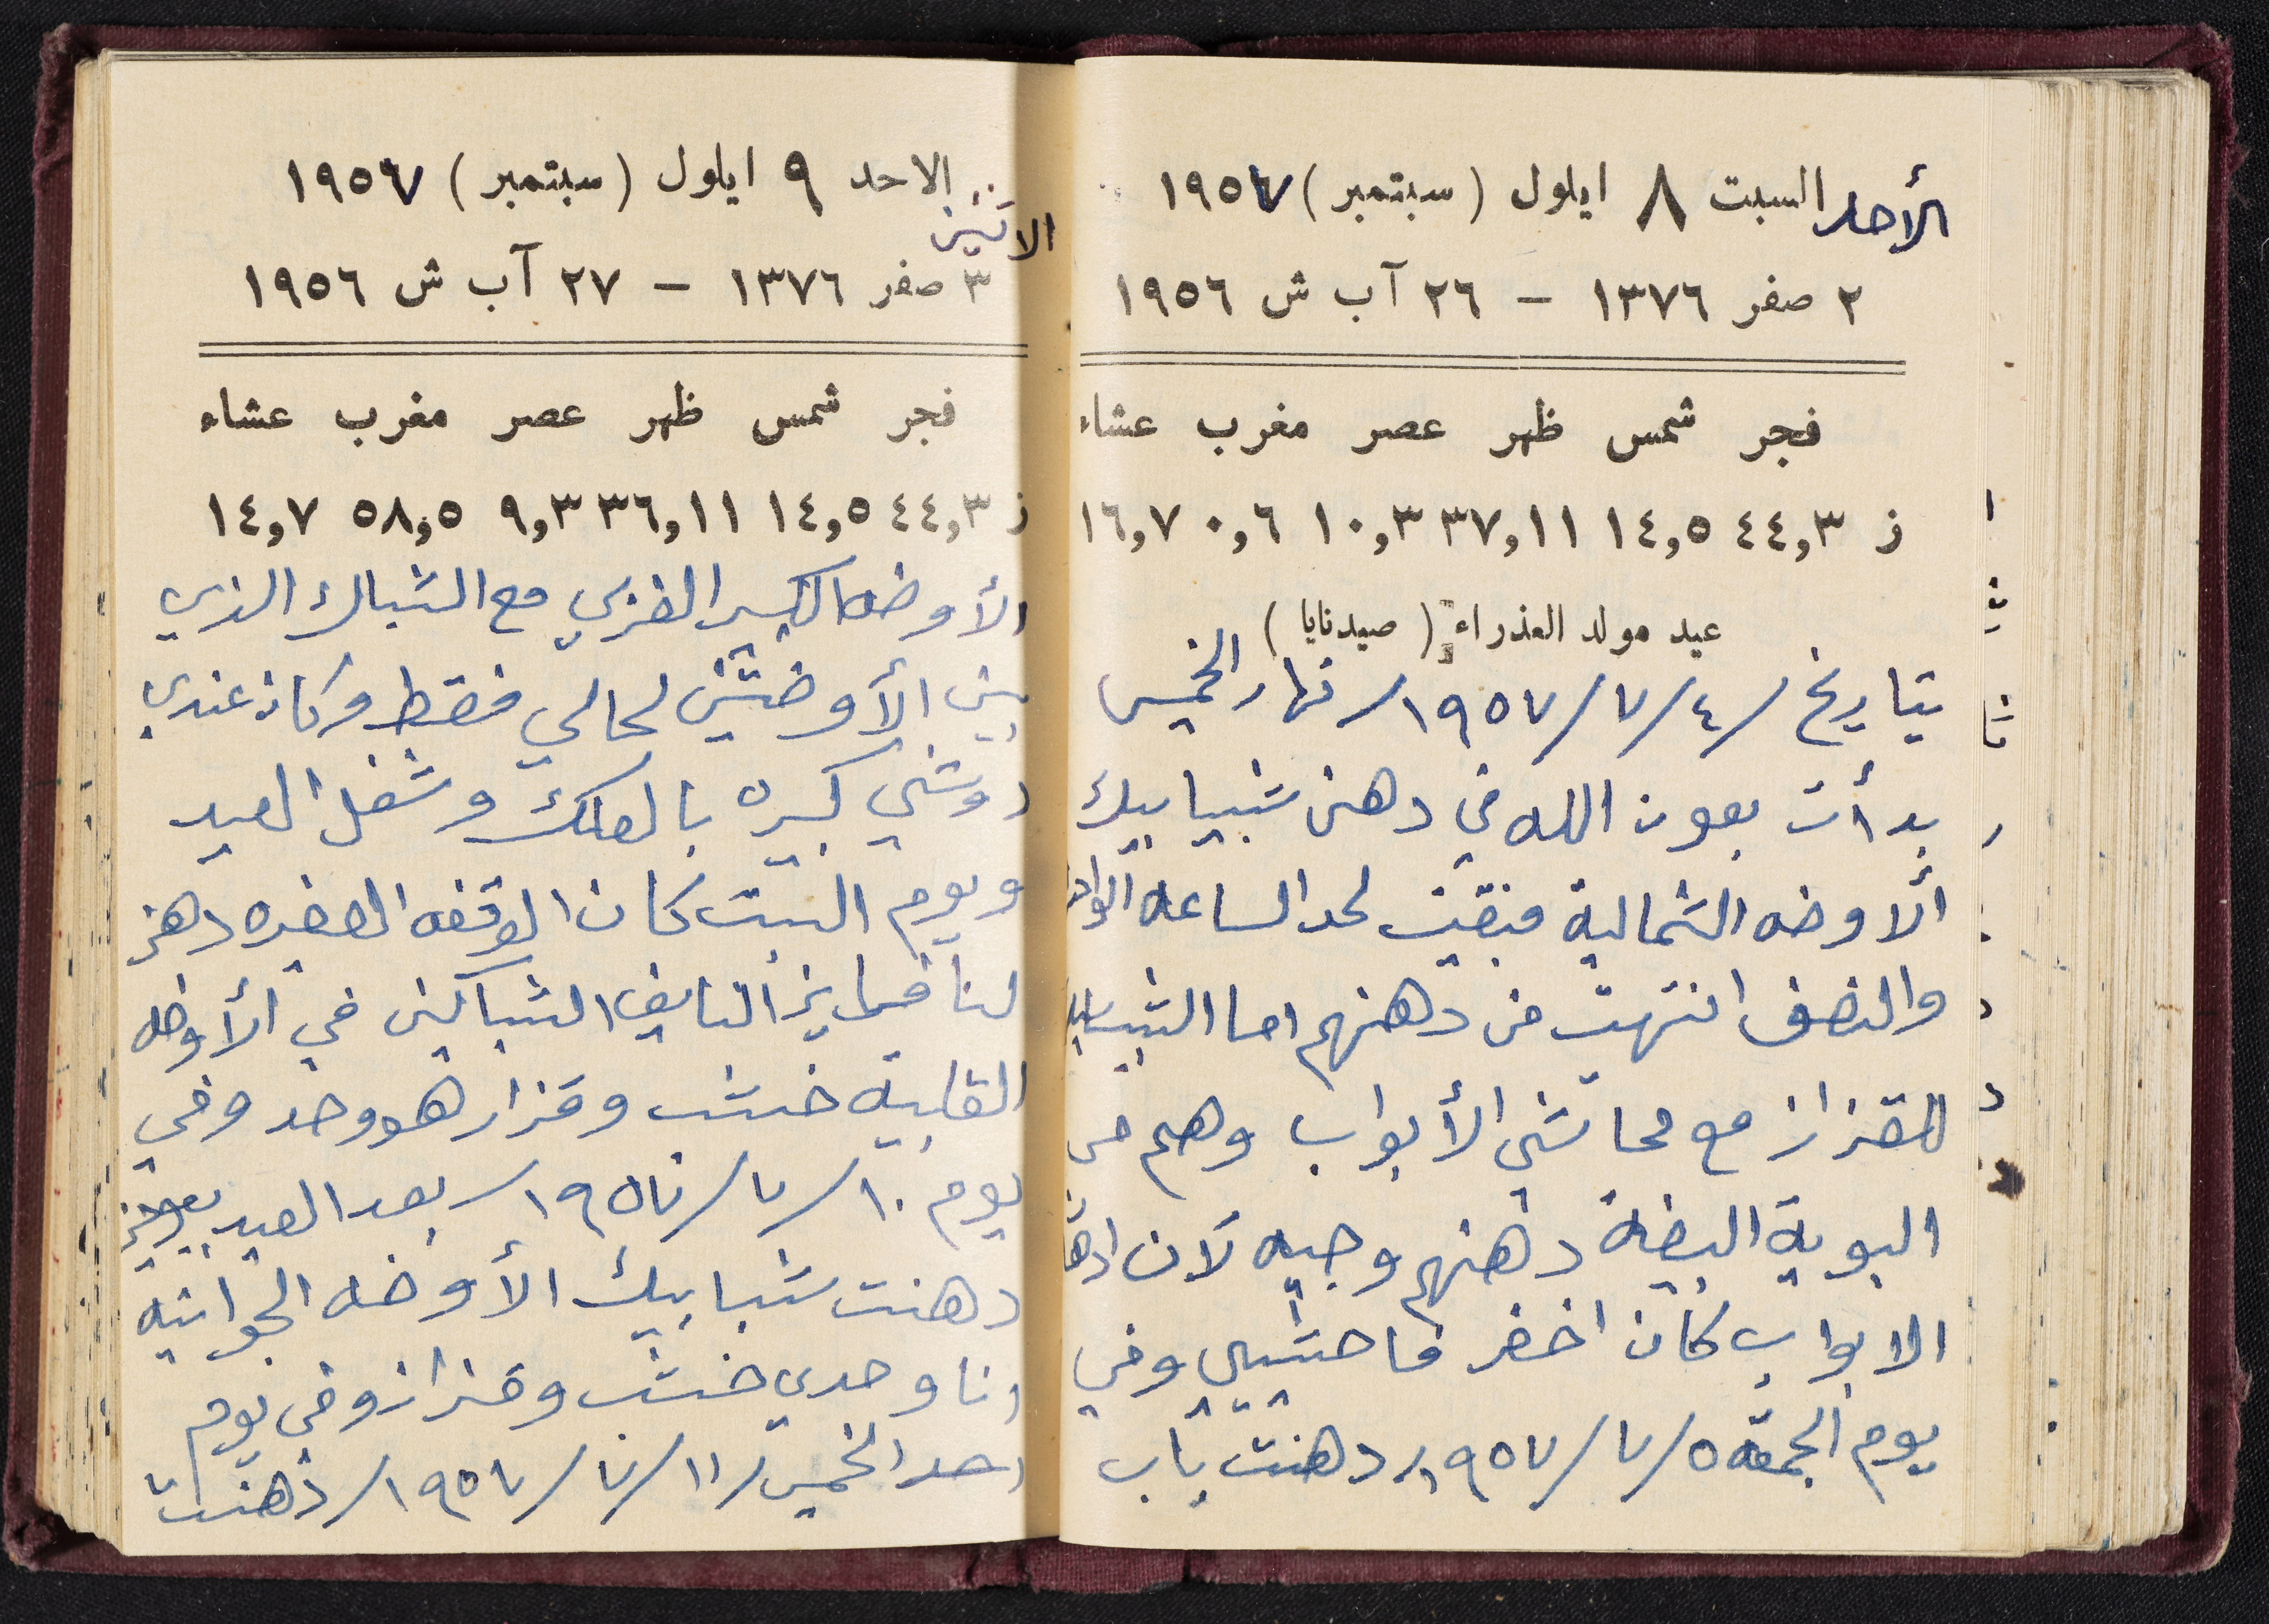 الأحد السبت ٨ ايلول (سبتمبر) ١٩٥٧
٢ صفر ١٣٧٦ – ٢٦ آب ش ١٩٥٦
فجر شمس ظهر عصر مغرب عشاء
ز ٤٤,٣ ١٤,٥ ٣٧,١١ ١٠,٣ ٠,٦ ١٦,٧
عيد مولد العذراء (صيدنايا)
بتاريخ /١٩٥٧/٧/٤/ نهار الخميس
بدأت بعون الله في دهن شبابيك
ألاوضه الشمالية فبقيت لحد الساعه
والنصف انتهت من دهنهم اما
القزاز مع محاشي الأبواب وهم من
البوية البيضة دهنهم وجيه لآن
الابواب كان اخضر فاحشيي وفي
يوم الجمعة ١٩٥٧/٧/٥/ دهنت باب
الاحد ٩ ايلول (سبتمبر) ١٩٥٧
الاثنين
٣ صفر ١٣٧٦ – ٢٧ آب ش ١٩٥٦
فجر شمس ظهر عصر مغرب عشاء
ز ٤٤,٣ ١٤,٥ ٣٦,١١ ٩,٣ ٥٨,٥ ١٤,٧
الأوضه الكبير الغربي مع الشباك الذي
بين الأوضتين لحالي فقط وكان عندي
دوشي كبيره بالعلك وشغل العيد
ويوم السبت كان الوقفه الصغيره دهن
لنا فايز النايف الشباكين في الأوضه
القلبية خشب وقزاز هو وحد وفي
يوم ١٩٥٧/٧/١٠/ بعد العيد
دهنت شبابيك الأوضه الجوانيه
انا وحدي خشب وقزاز وفي يوم
الخميس /١٩٥٧/٧/١١/ دهنت